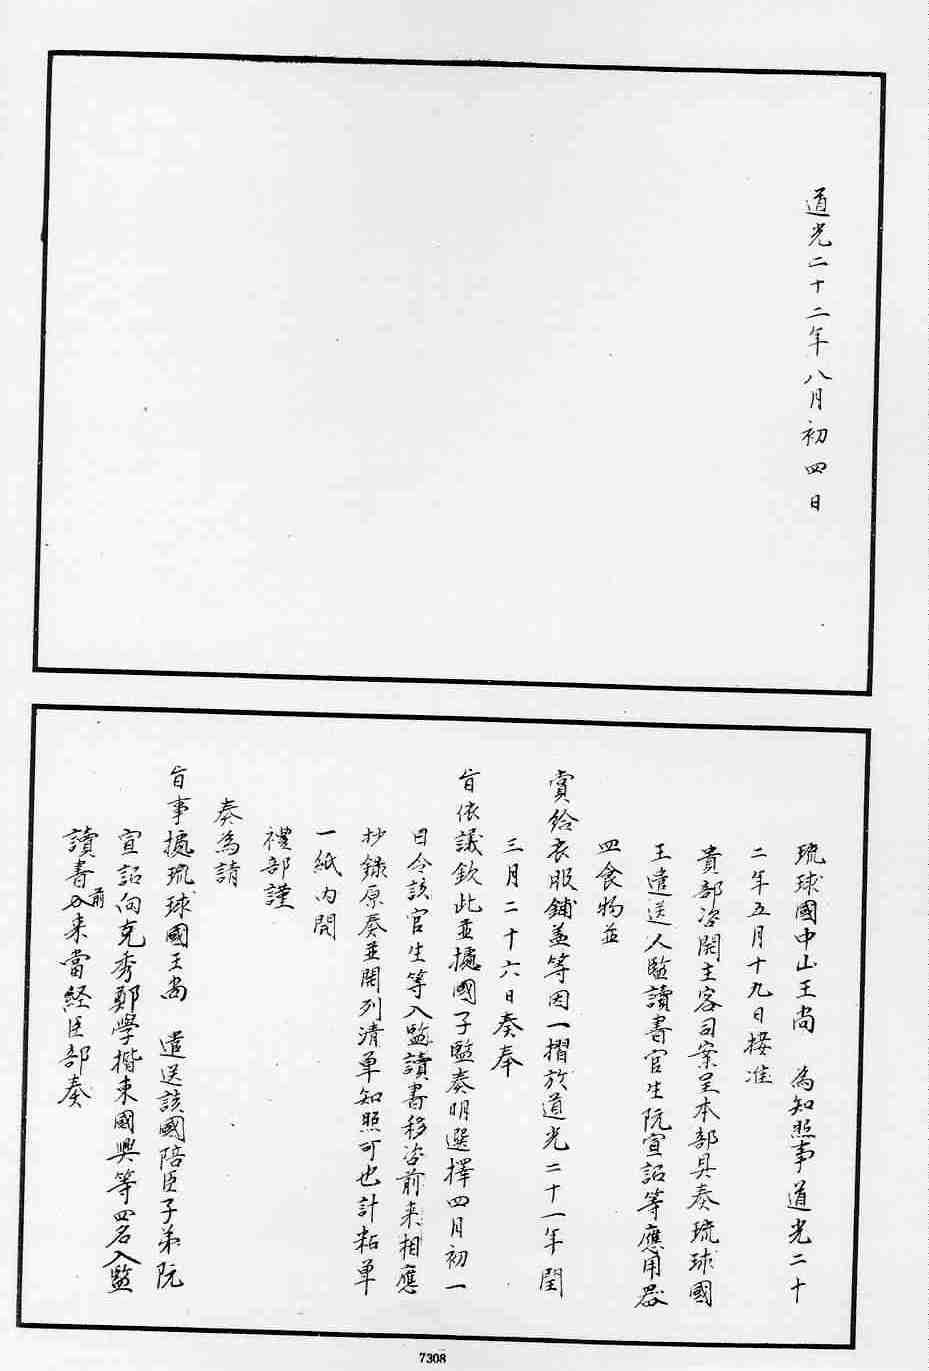 道光二十二年八月初四日
琉球國中山王尚　為知照事道光二十
二年五月十九日接准
貴部咨開主客司案呈本部具奏琉球國
王遣送入監讀書官生阮宣詔等應用器
皿食物並
賞給衣服鋪蓋等因一摺於道光二十一年閏
三月二十六日奏奉
旨依議欽此並據國子監奏明選擇四月初一
日令該官生等入監讀書移咨前来相應
抄錄原奏並開列清單知照可也計粘單
一紙內開
禮部謹
奏為請
旨事據琉球國王尚　遣送該國陪臣子弟阮
宣詔向克秀鄭學楷東國興等四名入監
讀書前来當経臣部奏
7308